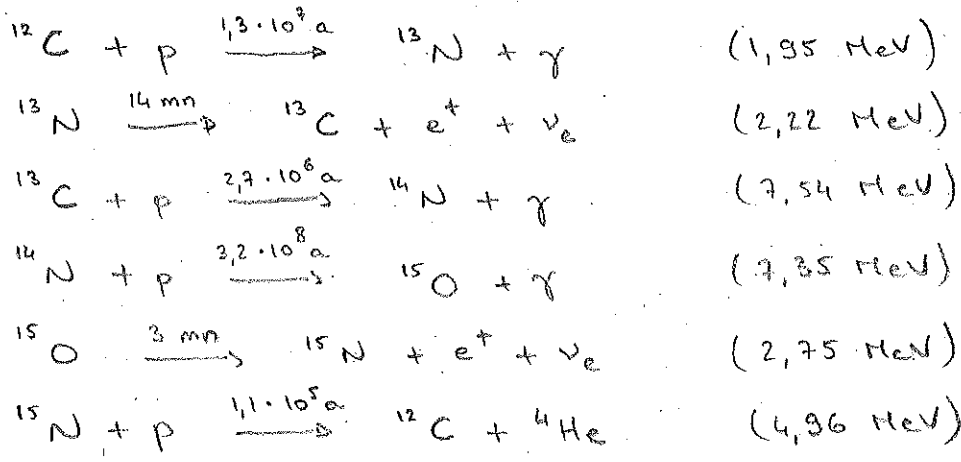 ¹²C + p —1,3·10⁷ a→ ¹³N + γ (1,95 MeV)
¹³N —14 mn→ ¹³C + e⁺ + νₑ (2,22 MeV)
¹³C + p —2,7·10⁶ a→ ¹⁴N + γ (7,54 MeV)
¹⁴N + p —3,2·10⁸ a→ ¹⁵O + γ (7,35 MeV)
¹⁵O —3 mn→ ¹⁵N + e⁺ + νₑ (2,75 MeV)
¹⁵N + p —1,1·10⁵ a→ ¹²C + ⁴He (4,96 MeV)